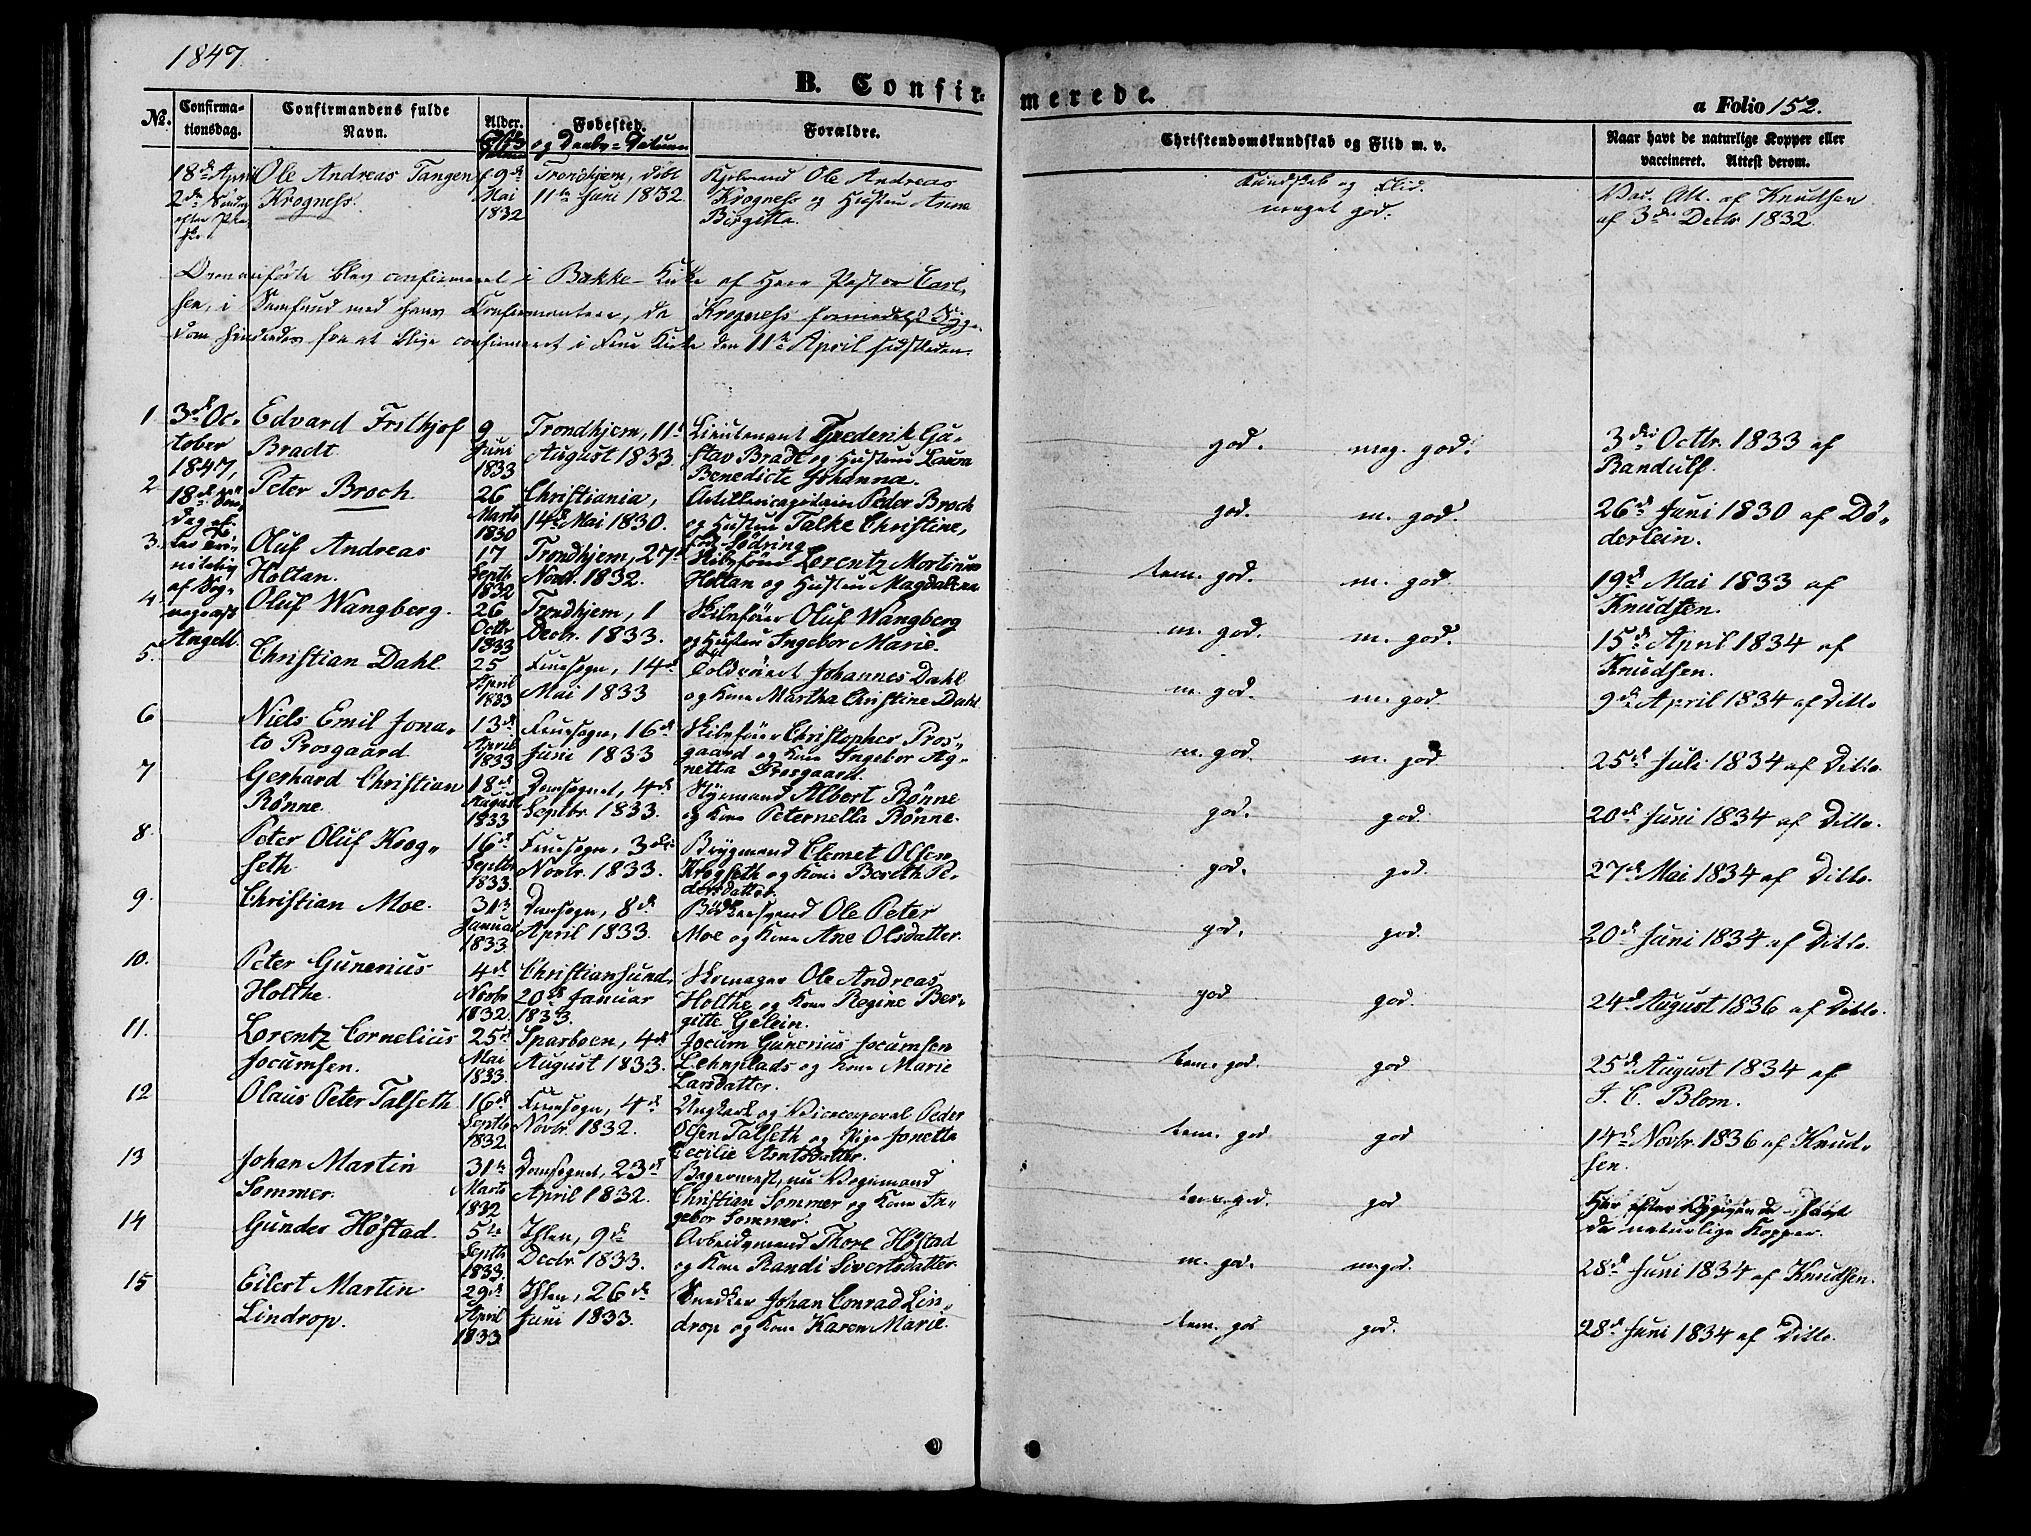 1847
B. Confirmerede.
a Folio 152.
No.
Confirmationsdag.
Confirmandens fulde Navn.
Alder.
Fødested.
og Daabs-Datum
Forældre.
Christendomskundskab og Flid m. v.
Naar havt de naturlige Kopper eller vaccineret. Attest derom.
18de April Ole Andreas Tangen f. 9de Trondhjem, døbt Ole Andreas Kundskab og Flid Vac. Att. af Knudsen
2den Søndag Krogness. Mai 11te Juni 1832. Krogness og Hustru Anne meget god. af 3die Decbr 1832.
efter Paaske. 1832 Birgitta.
Ovenanførte blev confirmeret i Bakke Kirke af Herr Pastor Carl-
sen, i Samfund med hans Confirmanter, da Krogness formedelst Syg-
dom hindredes fra at blive confirmeret i Frue Kirke den 11te April sidstleden.
1 3de Oc- Edvard Frithjof 9 Trondhjem, 11te Lieutenant Frederik Gu- god. meg. god. 3die Octbr. 1833 af
tober Bradt Juni August 1833 stav Bradt og Hustru Laura Randulf.
1847, 1833 Benedicte Johanna.
2 18de Søn- Peter Broch. 26 Christiania, Artillericapitain Peder Broch god. m. god. 26de Juni 1830 af Dø-
dag ef- Marts 14de Mai 1830. og Hustru Talke Christine, derlein.
1830 fød Sødring
3. ter Tri- Oluf Andreas 17 Trondhjem, 27de Skibsfører Lorentz Martinus tem. god. m. god. 19de Mai 1833 af
nitatis Holtan. Septb. Novbr. 1832. Holtan og Hustru Magdalena Knudsen.
af Sog- 1832
4. nepræst Oluf Wangberg. 26 Trondhjem, 1 Skibsfører Oluf Wangberg m. god. m. god. 15de April 1834 af
Angell Octbr. Decbr. 1833. og Hustru Ingebor Marie. Knudsen.
1833
5. Christian Dahl. 25 Fruesogn, 14de Johannes Dahl m. god. m. god. 9de April 1834 af Ditto
April Mai 1833 og Kone Martha Christine Dahl
1833
6 Niels Emil Jona- 13de Fruesogn, 16de Skibsfører Christopher Pros- m. god. m. god 25de Juli 1834 af Ditto.
to Prosgaard April Juni 1833 gaard og Kone Ingebor Ag-
1833 netta Prosgaard.
7 Gerhard Christian 18de Domsognet, 4de Styrmand Albert Rønne god. god. 20de Juni 1834 af Ditto.
Rønne. August Septbr. 1833. og Kone Peternella Rønne.
1833
8. Peter Oluf Krog- 16de Fruesogn, 3die Brygmand Clemet Olsen god. god. 27de Mai 1834 af Ditto.
seth Septbr. Novbr. 1833. Krogseth og Kone Bereth Pe-
1833. dersdatter.
9. Christian Moe. 31te Domsogn, 8de Bødkersvend Ole Peter god. god. 20de Juni 1834 af Ditto.
Januar April 1833. Moe og Kone Ane Olsdatter.
1833.
10. Peter Gunerius 4de Christiansund, Skomager Ole Andreas god god. 24de August 1836 af Ditto.
Holthe. Novbr 20de Januar Holthe og Kone Regine Ber-
1832. 1833. gitte Gelein.
11. Lorentz Cornelius 25de Sparboen, 4de Jocum Gunerius Jocumsen tem. god. god 25de August 1834 af
Jocumsen. Mai August 1833. Lehnplads og Kone Marie J. C. Blom.
1833. Larsdatter.
12 Olaus Peter Talseth 16de Fruesogn, 4de Ungkarl og Vicecorporal Peder tem. god god 14de Novbr. 1836 af Knud-
Septbr. Novbr. 1832. Olsen Talseth og Pige Jonetta sen.
1832 Cecilie Arntsdatter.
13 Johan Martin 31te Domsognet, 23de Bagermest., nu Vognmand tem. god. god Har efter Opgivende havt
Sommer. Marts April 1832. Christian Sommer og Kone In- de naturlige Kopper.
1832 gebor Sommer.
14 Gunder Høstad. 5te Ihlen, 9de Arbeidsmand Thore Høstad m. god. m. god. 28de Juni 1834 af Knudsen.
Septbr Decbr. 1833. og Kone Randi Sivertsdatter
1833.
15 Eilert Martin 29de Ihlen, 26de Snedker Johan Conrad Lin- tem. god god. 28de Juni 1834 af Ditto.
Lindrop. April Juni 1833. drop og Kone Karen Marie.
1833